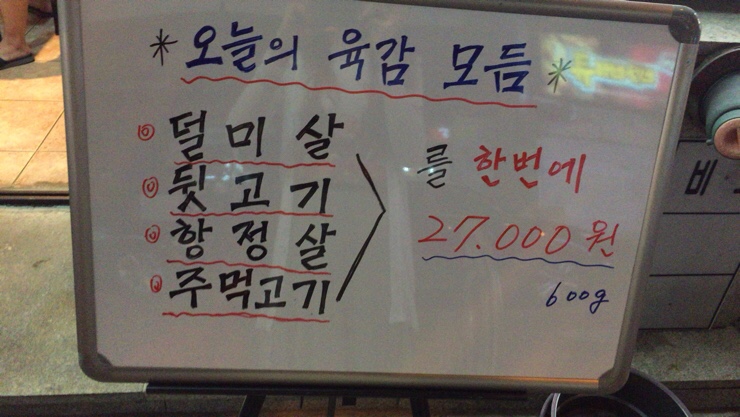 * 오늘의 육감 모듬 *
덜미살
뒷고기
항정살
주먹고기
를 한번에
27.000원
600g
비